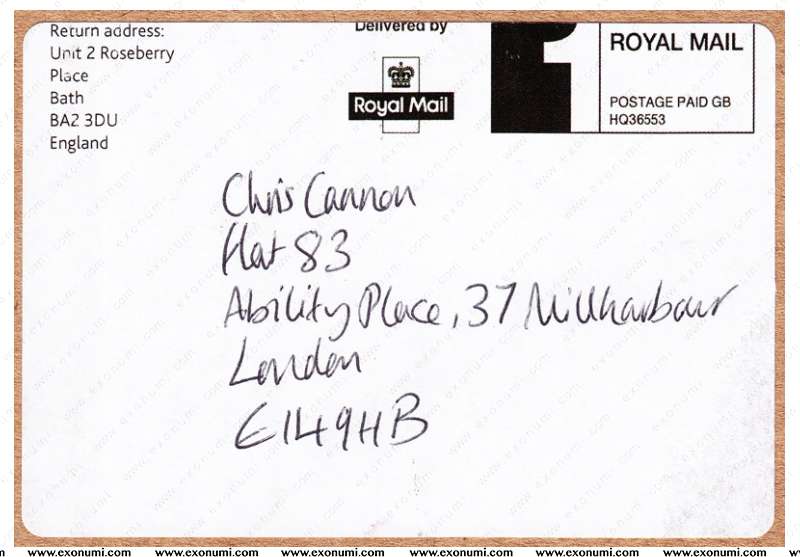 Return address:
Unit 2 Roseberry
Place
Bath
BA2 3DU
England
Delivered by
Royal Mail
1
ROYAL MAIL
POSTAGE PAID GB
HQ36553
Chris Cannon
Flat 83
Ability Place, 37 Millharbour
London
E14 9HB
www.exonumi.com www.exonumi.com www.exonumi.com www.exonumi.com www.exonumi.com www.exonumi.com